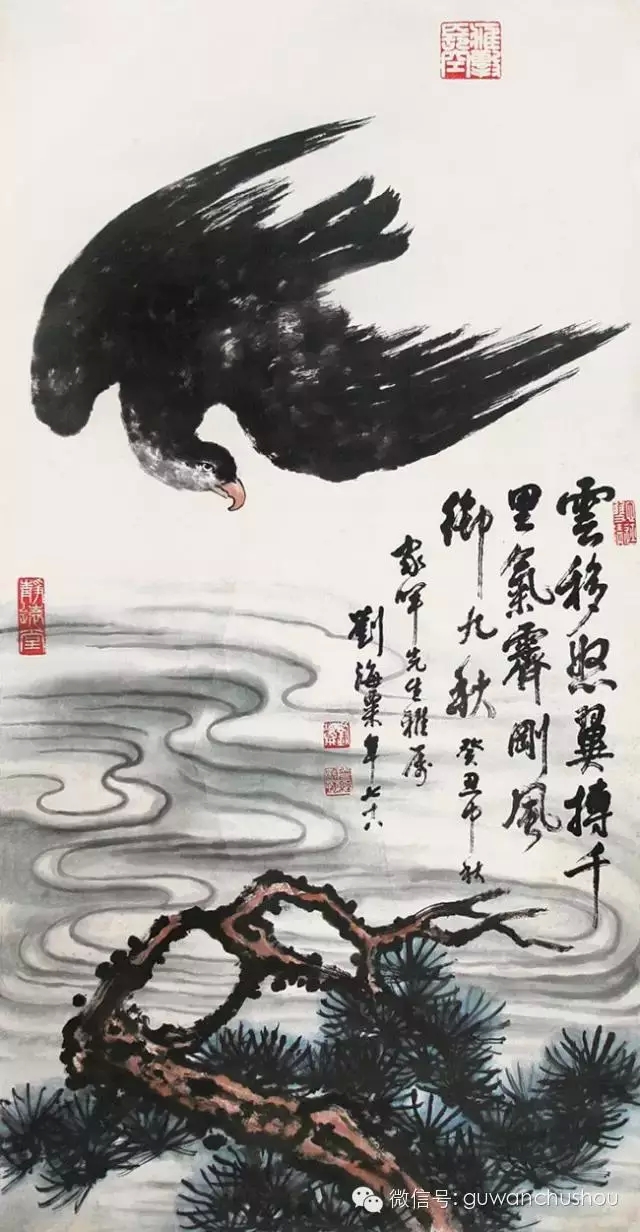 雲移怒翼搏千
里氣霽剛風
御九秋 癸丑中秋
家暉先生雅属
劉海粟年七十八
靜遠堂
微信号: guwanchushou